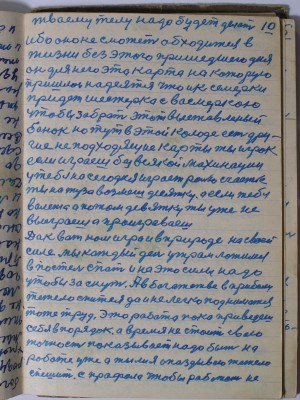 твоему телу надо будет дсать 10
ибо оно не сможет обходится в
жизни без этого пришедшего дня
он для него это карта на которую
пришлось надеятся что и к семерке
придет шестерка с вальтом
чтобы забрать этот выставленый
банок но тут в этой колоде есть дру-
гие не подходящие карты ты игрок
сам играеш бу всякой махинации
у тебя на сегодня играет роль счастье
ты на туза возмеш десятку, а если тебя
валета а потом девятку ты уже не
выиграеш а проигреваеш
Так вот и он игра и в природе на своей
силе мы каждый ден утрам ложимся
в постел спат и на это силы надо
чтобы заснут. А в богатстве в прибыли
тяжело спится да и не легко поднимается
тоже труд. Это работа пока приведеш
себя в порядок, а время не стоит свою
точность показывает надо быть на
работе уже а ты или опаздываеш тяжело
спешит, с графека чтобы работат не